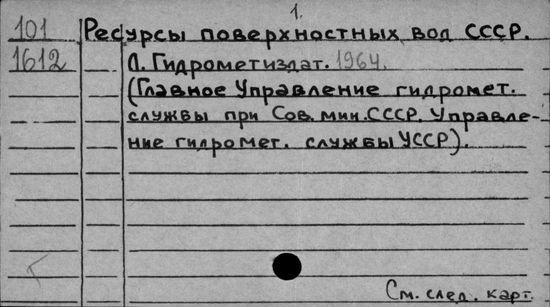 1.
101 Ресурсы поверхностных вод СССР.
1612 Л. Гидрометиздат. 1964.
(Главное Управление гидромет.
службы при Сов. мин. СССР. Управле-
ние гидромет. службы УССР).
См. след. карт.